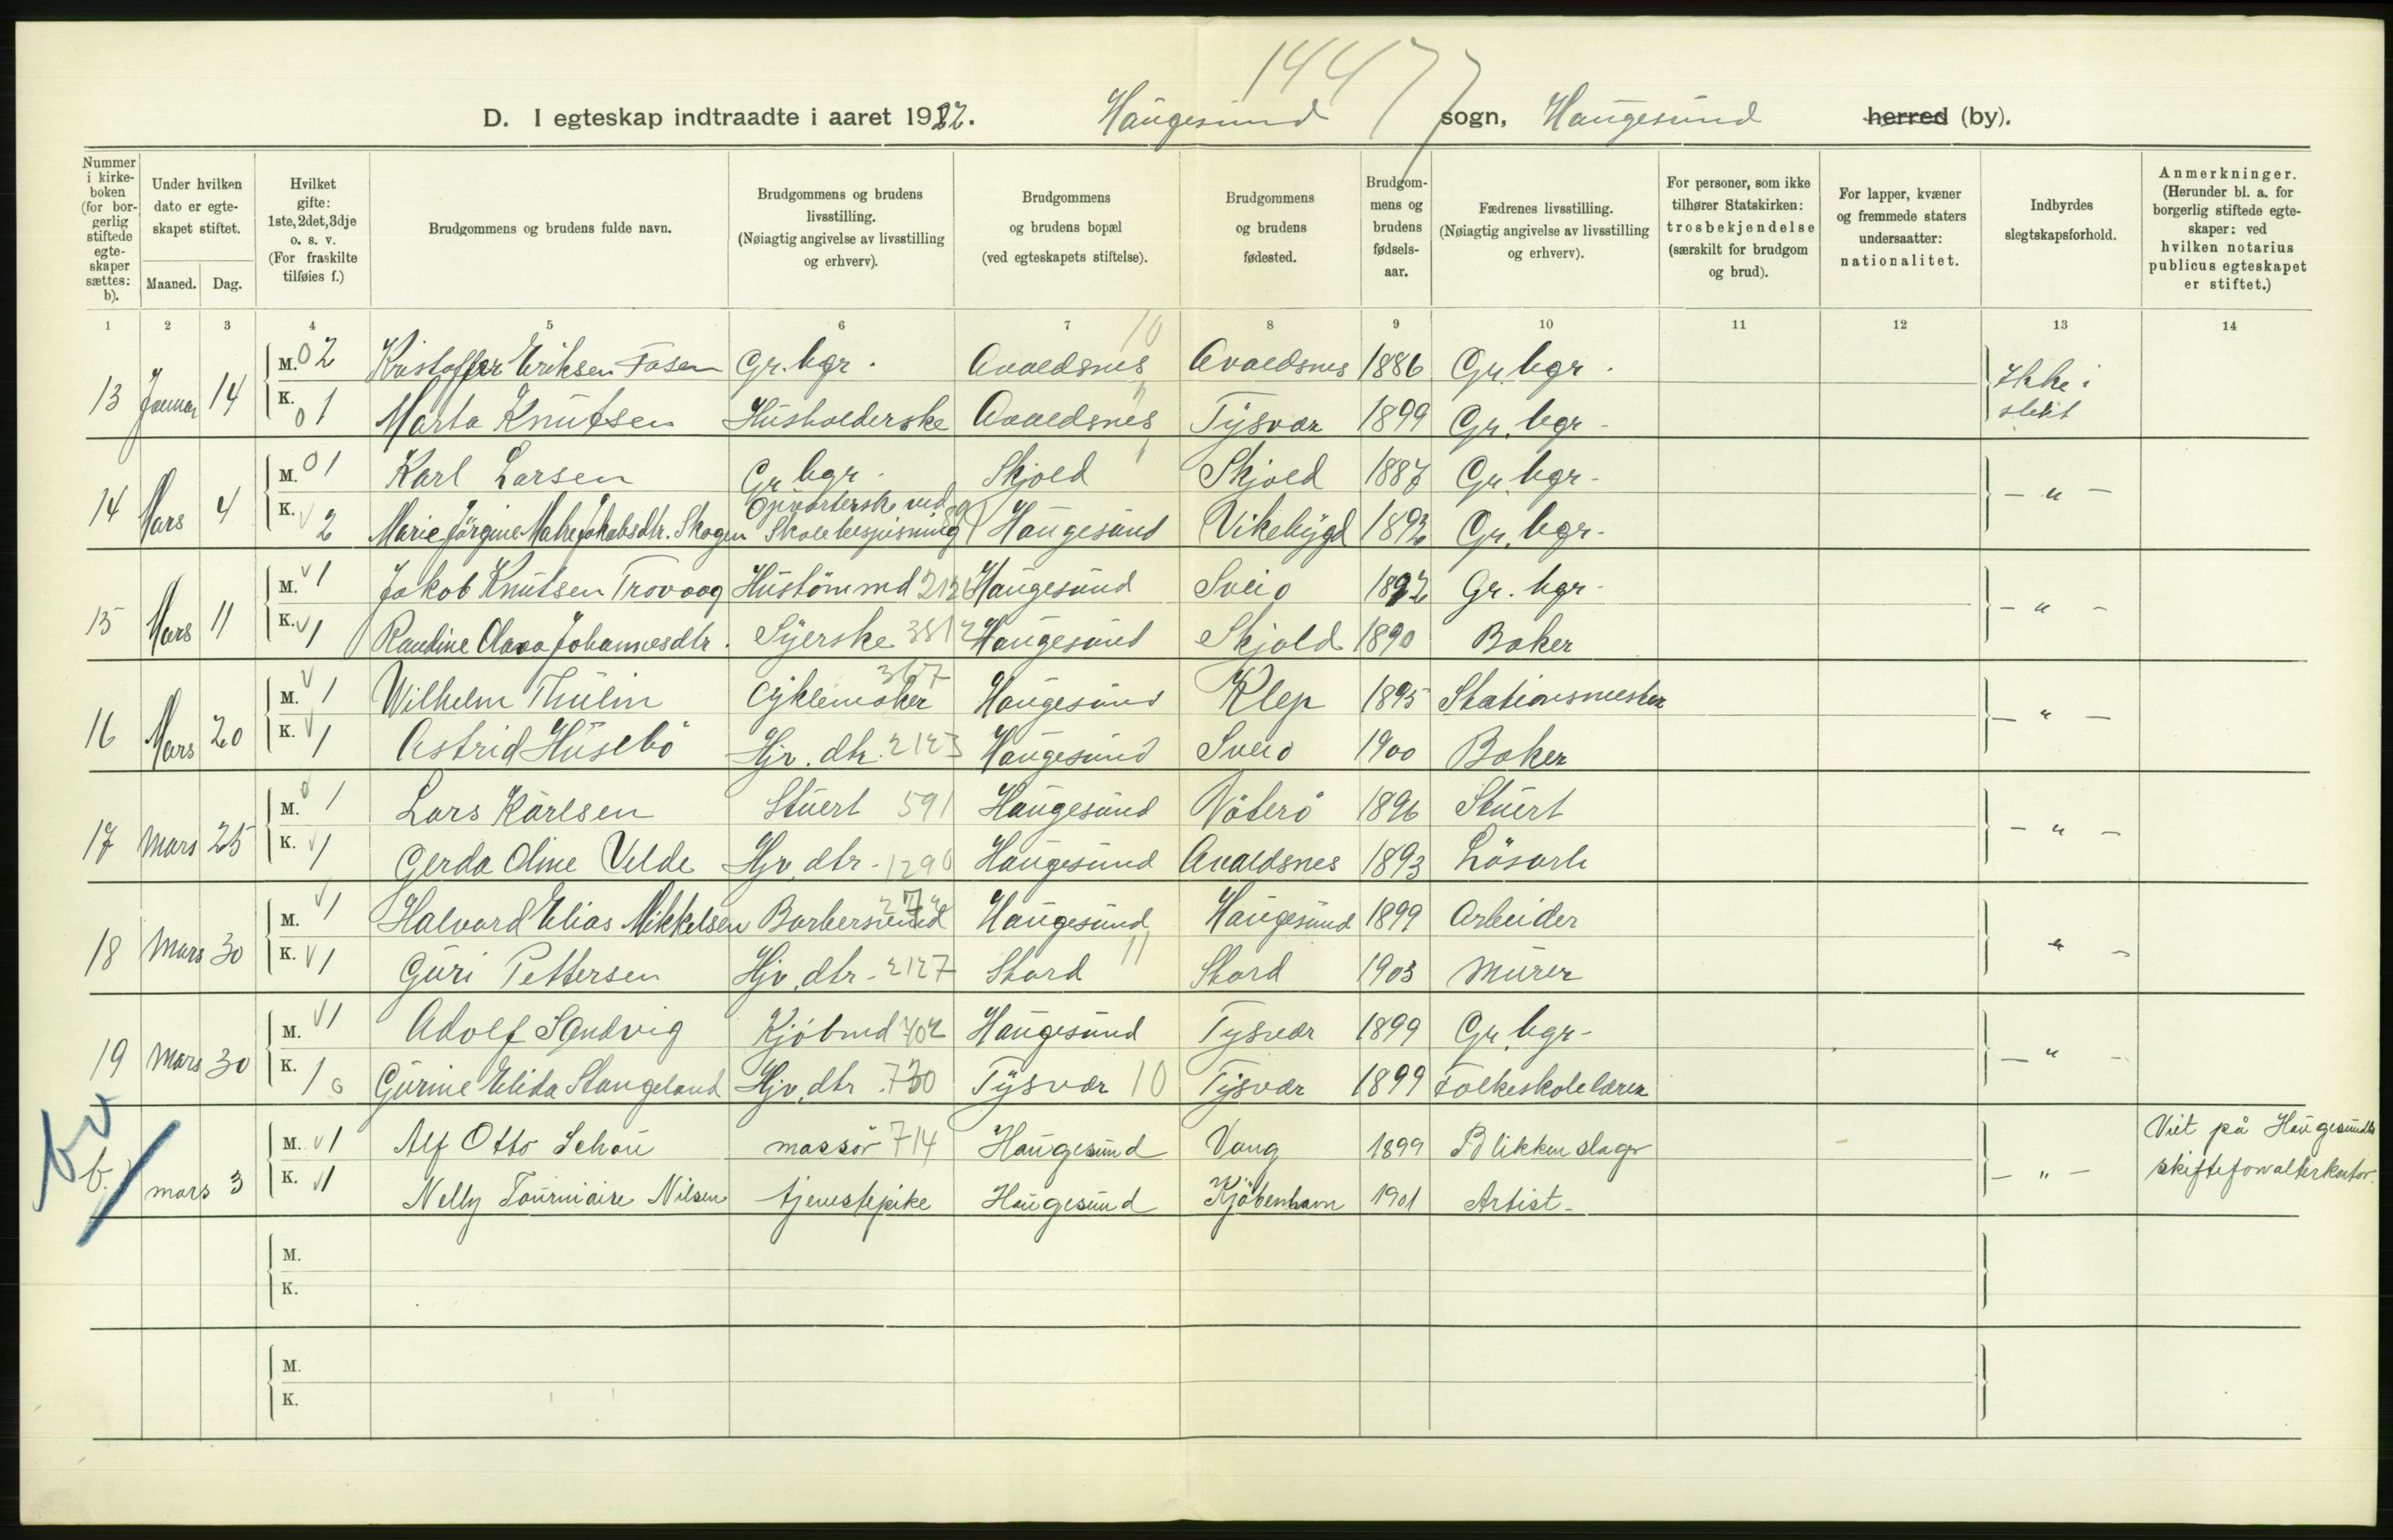 1447
D. I egteskap indtraadte i aaret 1922. Haugesund sogn, Haugesund herred (by).
Nummer i kirkeboken (for borgerlig stiftede egteskaper sættes: b).
Under hvilken dato er egteskapet stiftet.
Maaned. Dag.
Hvilket gifte: 1ste, 2det, 3dje o. s. v. (For fraskilte tilføies f.)
Brudgommens og brudens fulde navn.
Brudgommens og brudens livsstilling. (Nøiagtig angivelse av livsstilling og erhverv).
Brudgommens og brudens bopæl (ved egteskapets stiftelse).
Brudgommens og brudens fødested.
Brudgommens og brudens fødselsaar.
Fædrenes livsstilling. (Nøiagtig angivelse av livsstilling og erhverv).
For personer, som ikke tilhører Statskirken: trosbekjendelse (særskilt for brudgom og brud).
For lapper, kvæner og fremmede staters undersaatter: nationalitet.
Indbyrdes slegtskapsforhold.
Anmerkninger. (Herunder bl. a. for borgerlig stiftede egteskaper: ved hvilken notarius publicus egteskapet er stiftet.)
1 2 3 4 5 6 7 8 9 10 11 12 13 14
13 Januar 14 M. 0 2 Kristoffer Eriksen Fosen Gr. bgr. Avaldsnes 10 Avaldsnes 1886 Gr. bgr. Ikke i slekt
K. 0 1 Marta Knutsen Husholderske Avaldsnes Tysvær 1899 Gr. bgr.
14 Mars 4 M. 0 1 Karl Larsen Gr. bgr. Skjold Skjold 1887 Gr. bgr. - " -
K. v 2 Marie Jörgine Malre Jakobsdtr. Skogen Opvarterske ved Skolebespisning Haugesund Vikebygd 1892 Gr. bgr.
15 Mars 11 M. v 1 Jakob Knutsen Trovaag Hustömmd 2121 Haugesund Sveio 1892 Gr. bgr. - " -
K. v 1 Raudine Olava Johannesdtr. Syerske 3512 Haugesund Skjold 1890 Baker
16 Mars 20 M. v 1 Wilhelm Thulin Cyklemaker 367 Haugesund Klep 1895 Stationsmester - " -
K. v 1 Astrid Husebö Hjv. dtr. 2123 Haugesund Sveio 1900 Baker
17 Mars 25 M. 0 1 Lars Karlsen Stuert 591 Haugesund Nöterö 1896 Stuert - " -
K. v 1 Gerda Oline Velde Hjv. dtr. 1290 Haugesund Avaldsnes 1893 Lösarb
18 Mars 30 M. v 1 Halvard Elias Mikkelsen Barbersvend Haugesund Haugesund 1899 Arbeider " -
K. v 1 Guri Pettersen Hjv. dtr. 2127 Stord 11 Stord 1903 Murer
19 Mars 30 M. v 1 Adolf Sandvig Kjöbmd 702 Haugesund Tysvær 1899 Gr. bgr. - " -
K. 1 0 Gurine Elida Stangeland Hjv. dtr. 730 Tysvær 10 Tysvær 1899 Folkeskolelærer
bv
b. mars 3 M. v 1 Alf Otto Schou massör 714 Haugesund Vang 1899 Blikkenslager - " - Viet på Haugesunds
K. v 1 Nelly Tourniaire Nilsen tjenestepike Haugesund Kjöbenhavn 1901 Artist skifteforvalterkontor.
M.
K.
M.
K.